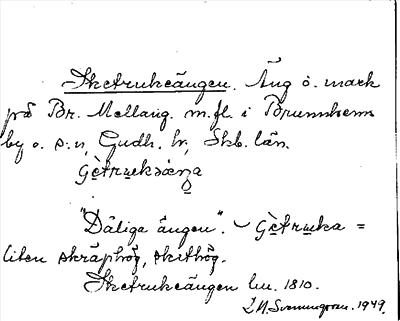 Sketrukeängen. Äng o. mark
på Br. Mellang. m.fl. i Brunnhems
by o. s:n, Gudh. hr, Skb. län.
"Dåliga ängen". Gètruka =
liten skräphög, skithög.
Sketrukeängen lm. 1810.
1949.